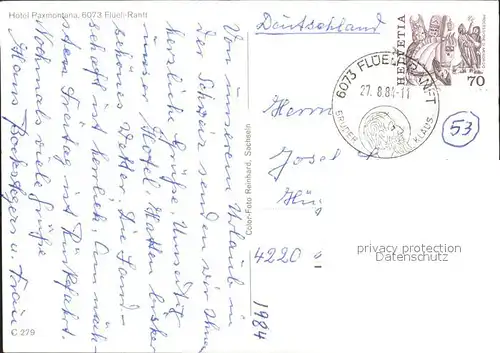 Hotel Paxmontana, 6073 Flüeli-Ranft
Von unserem Urlaub in
der Schweiz senden wir Ihnen
herzliche Grüße. Umseitig
unser Hotel. Hatten bisher
schönes Wetter. Die Land-
schaft ist herrlich. Am näch-
sten Freitag ist Rückfahrt.
Nochmals viele Grüße
Hans u. Frau
C 279
Color-Foto Reinhard, Sachseln
Deutschland
HELVETIA
70
6073 FLÜELI-RANFT
27.8.84-11
BRUDER KLAUS
53
Herrn
Josef
4220
1984
privacy protection
Datenschutz